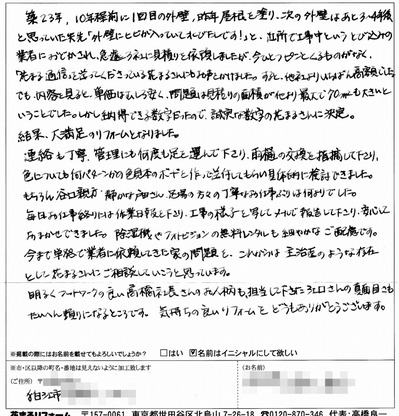 築23年，10年程前に1回目の外壁，昨年屋根を塗り、次の外壁はあと3〜4年後
と思っていた矢先「外壁にヒビが入っていますヨ」と、近所で工事中というとび込みの
業者におどかされ、急遽ネットに見積りを依頼しましたが、今ひとつピンとくるものがなく、
「花まる通信」を送ってくださっている花まるさんにも声をかけました。すると、他社よりいちばん高額でした
でも、内容を見ると、単価はむしろ安く、問題は見積りの面積が他社より最大で70㎡も大きいと
いうことでした。しかし納得できる数字だったので、誠実な数字の花まるさんに決定。
結果、大満足のリフォームとなりました。
連絡も丁寧、管理にも何度も足を運んで下さり、雨樋の交換を指摘して下り、
色についても何パターンかの色見本のボードを作って送付してもらい具体的に検討できました。
もちろん谷口親方・静かな戸田さん、足場の方々の丁寧なお仕事ぶりは何よりでした。
毎日お仕事終りには作業日報を下さり、工事の様子を写してメールで報告して下さり、安心して
おまかせできました。除湿機やテレビジョンの無料レンタルも細やかなご配慮です。
今まで単発で業者に依頼してきた家の問題を、これからは主治医のような存在
として花まるさんにご相談していこうと思っています。
明るくフットワークの良い高橋社長さんのお人柄も、担当して下さった江口さんの真面目さも
たいへん頼りになるところです。気持ちの良いリフォームをどうもありがとうございます。
※掲載の際にはお名前を載せてもよろしいでしょうか？ □はい ☑名前はイニシャルにして欲しい
※市・区以降の町名・番地は見えないように加工致します
（ご住所） 〒 （お名前）
狛江市
花まるリフォーム 〒157-0061 東京都世田谷区北烏山7-26-18 ☎0120-870-346 代表：高橋良一